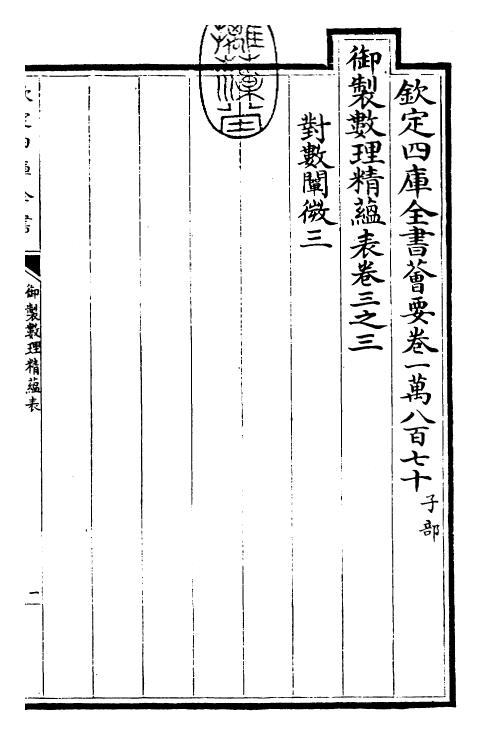 欽定四庫全書薈要卷一萬八百七十 子部
御製數理精蘊表卷三之三
對數闡微三
摛藻堂
欽定四庫全書
御製數理精蘊表
一